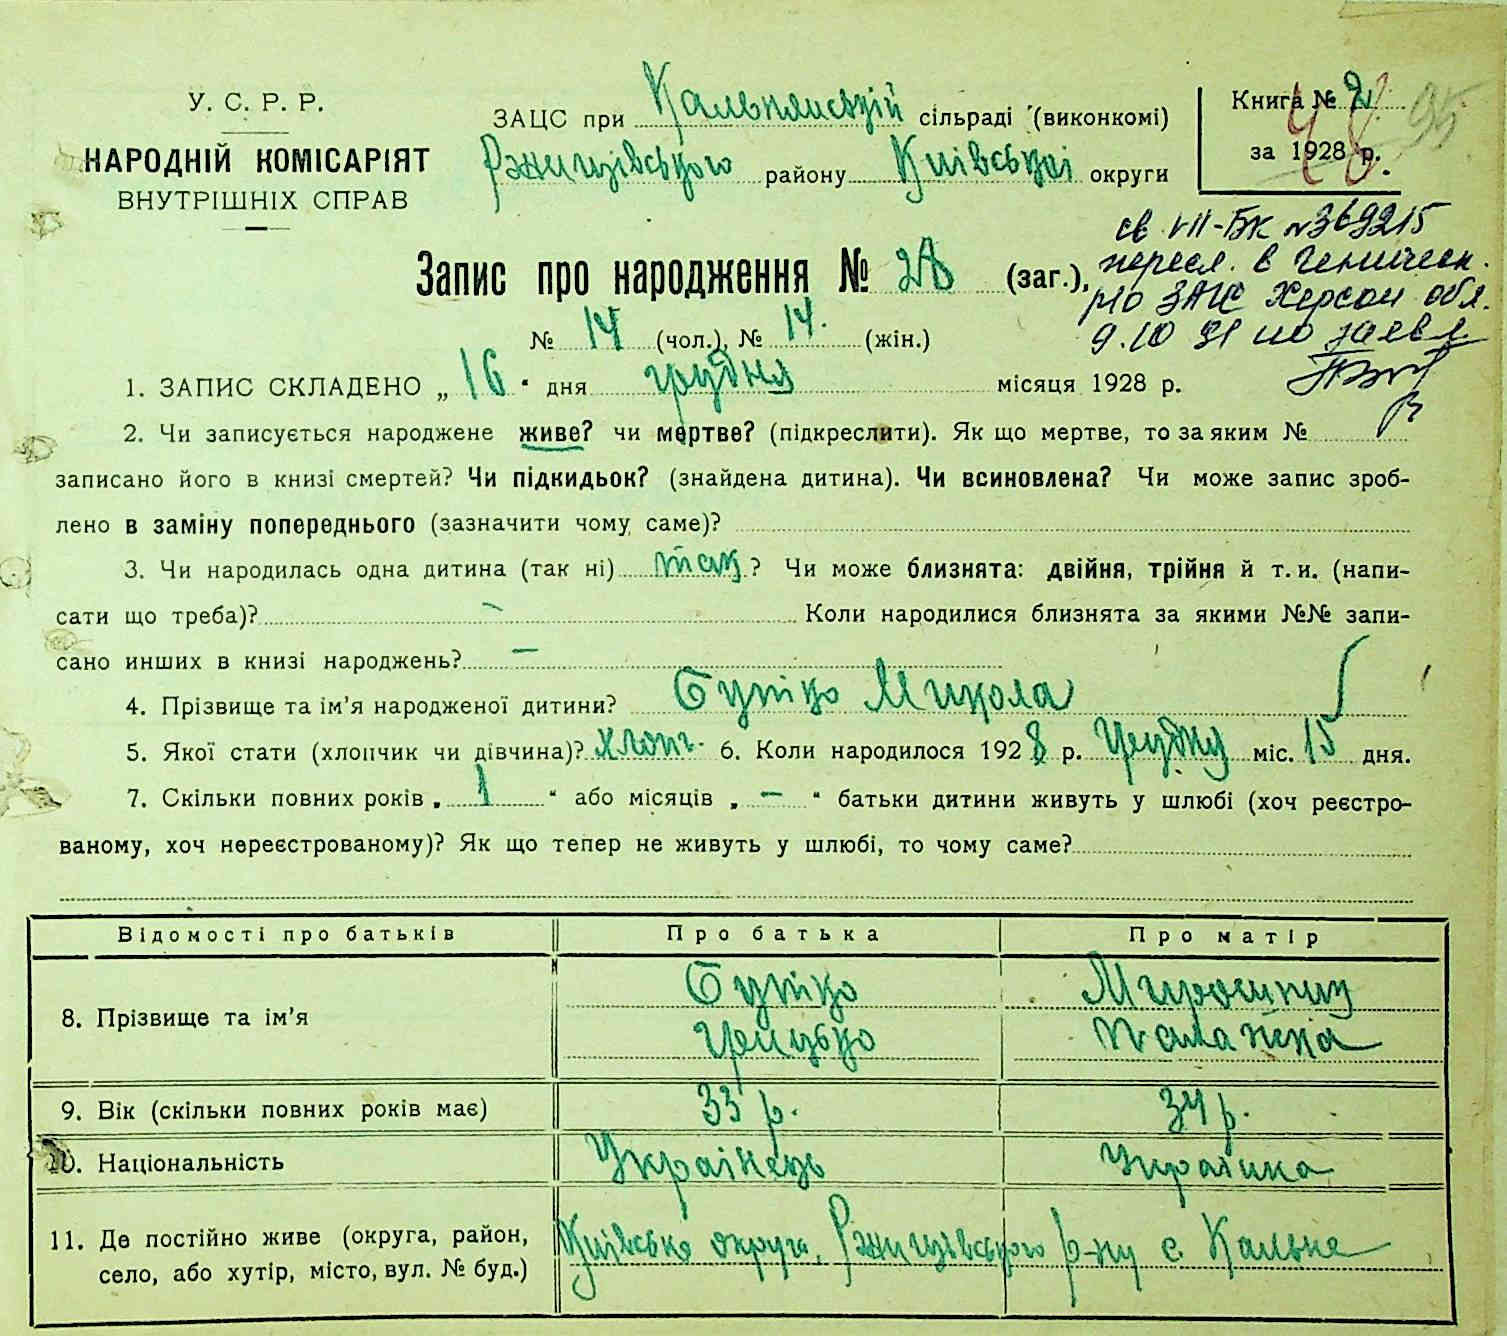 У. С. Р. Р.
НАРОДНІЙ КОМІСАРІЯТ
ВНУТРІШНІХ СПРАВ
ЗАЦС при Кальнянській сільраді (виконкомі)
Ржищівського району Київської округи
Книга № 2
за 1928 р.
95
св VII-БК № 369215
пересл. в Геническ.
р/о ЗАГС Херсон обл.
9.10 81 по заявл
Запис про народження № 28 (заг.),
№ 14 (чол.), № 14. (жін.)
1. ЗАПИС СКЛАДЕНО „ 16 “ дня грудня місяця 1928 р.
2. Чи записується народжене живе? чи мертве? (підкреслити). Як що мертве, то за яким №
записано його в книзі смертей? Чи підкидьок? (знайдена дитина). Чи всиновлена? Чи може запис зроб-
лено в заміну попереднього (зазначити чому саме)?
3. Чи народилась одна дитина (так ні) так ? Чи може близнята: двійня, трійня й т. и. (напи-
сати що треба)? - Коли народилися близнята за якими №№ запи-
сано инших в книзі народжень? —
4. Прізвище та ім’я народженої дитини? Бутко Микола
5. Якої стати (хлопчик чи дівчина)? хлопч. 6. Коли народилося 1928 р. Грудну міс. 15 дня.
7. Скільки повних років „ 1 “ або місяців „ — “ батьки дитини живуть у шлюбі (хоч реєстро-
ваному, хоч нереєстрованому)? Як що тепер не живуть у шлюбі, то чому саме?
Відомості про батьків Про батька Про матір
8. Прізвище та ім’я Бутко Грицько
Палажка
9. Вік (скільки повних років має) 33 р. 34 р.
10. Національність Українець Українка
11. Де постійно живе (округа, район, село, або хутір, місто, вул. № буд.) Київська округа, Ржищівського р-ну с. Кальне